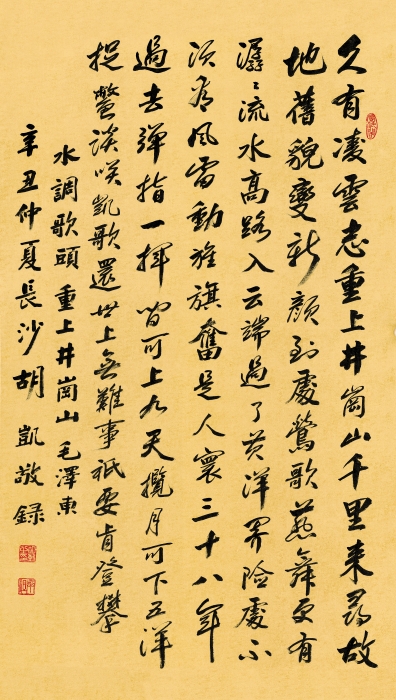 久有凌雲志重上井崗山千里来尋故
地舊貌變新顔到處鶯歌燕舞更有
潺〻流水高路入云端過了黄洋界险處不
须看风雷動旌旗奮是人寰三十八年
過去弹指一揮间可上九天攬月可下五洋
捉鳖谈咲凱歌還世上無難事衹要肯登攀
水調歌頭重上井崗山毛澤東
辛丑仲夏長沙胡凱敬録